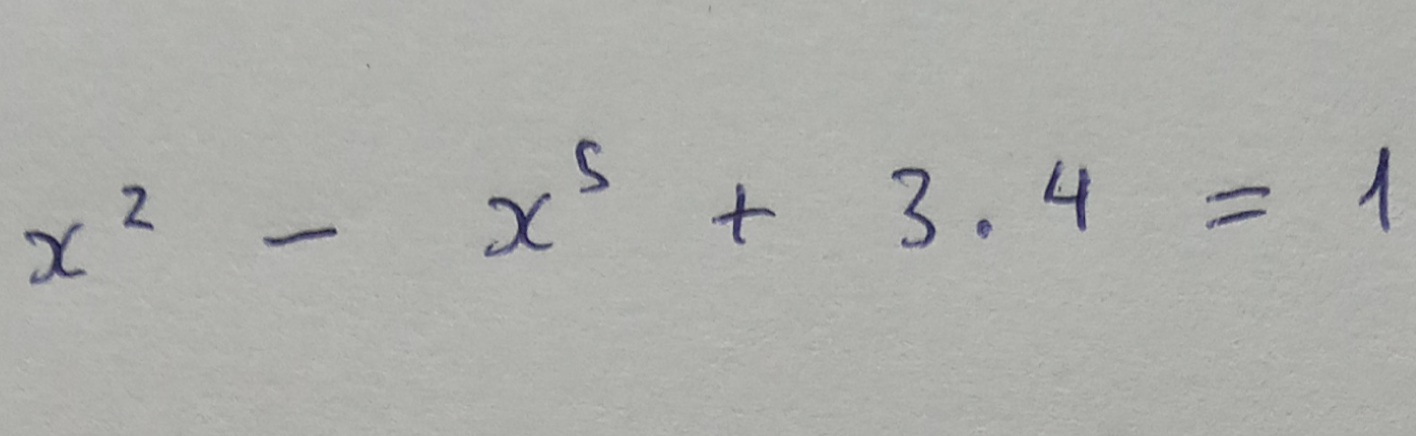 x² - x⁵ + 3.4 = 1